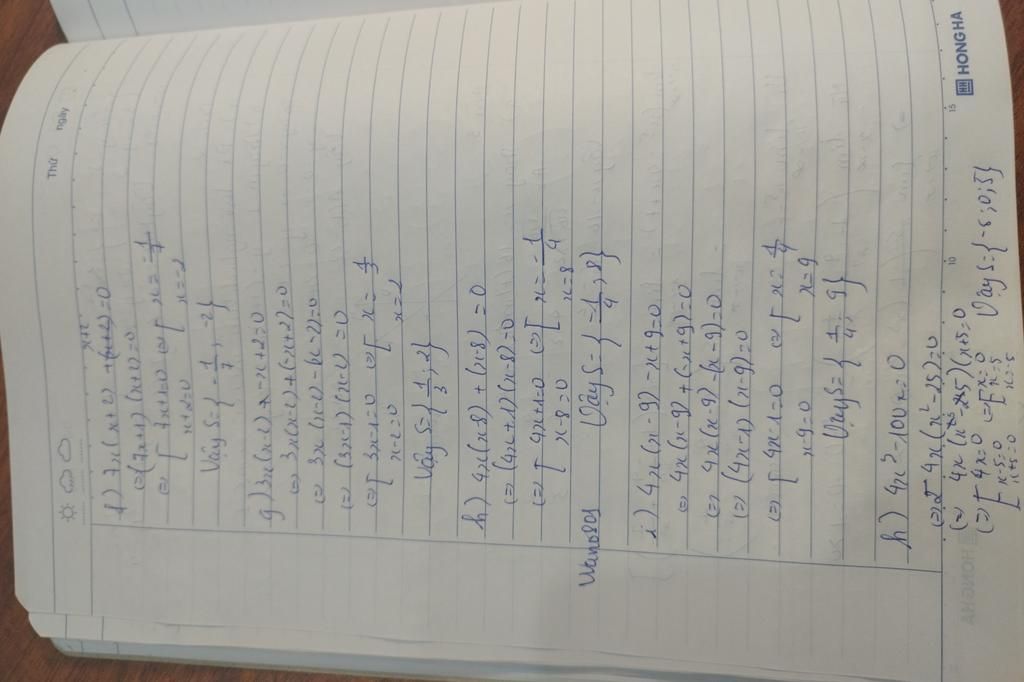 Thứ
ngày
f) 7x(x+2) + (x+2) = 0
(=) (7x+1)(x+2) = 0
(=) [ 7x+1=0 (=) [ x = -1/7
x+2=0 x=-2
Vậy S={ -1/7 ; -2 }
g) 3x(x-2) - x+2=0
(=) 3x(x-2)+(-x+2)=0
(=) 3x(x-2)-(x-2)=0
(=) (3x-1)(x-2)=0
(=) [ 3x-1=0 (=) [ x= 1/3
x-2=0 x=2
Vậy S={ 1/3 ; 2 }
h) 4x(x-8) + (x-8) = 0
(=) (4x+1)(x-8)=0
(=) [ 4x+1=0 (=) [ x= -1/4
x-8=0 x=8
Vậy S= { -1/4 ; 8 }
i) 4x(x-9) -x+9=0
(=) 4x(x-9)+(-x+9)=0
(=) 4x(x-9)-(x-9)=0
(=) (4x-1)(x-9)=0
(=) [ 4x-1=0 (=) [ x= 1/4
x-9=0 x=9
Vậy S= { 1/4 ; 9 }
h) 4x²-100x=0
(=) 4x(x²-25)=0
(=) 4x(x-5)(x+5)=0
(=) [ 4x=0 (=) [ x=0
x-5=0 x=5
x+5=0 x=-5
Vậy S={-5;0;5}
10
15
HONG HA